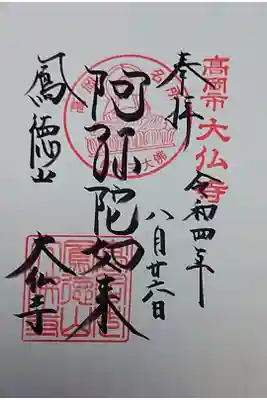 高岡市 大仏寺
奉拝
令和四年
八月廿六日
阿弥陀如来
鳳徳山
大仏寺